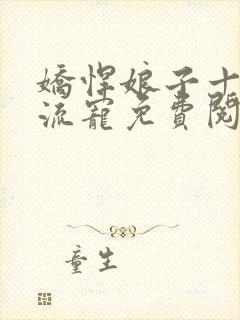 嬌悍娘子十
流寵免費閱
童生